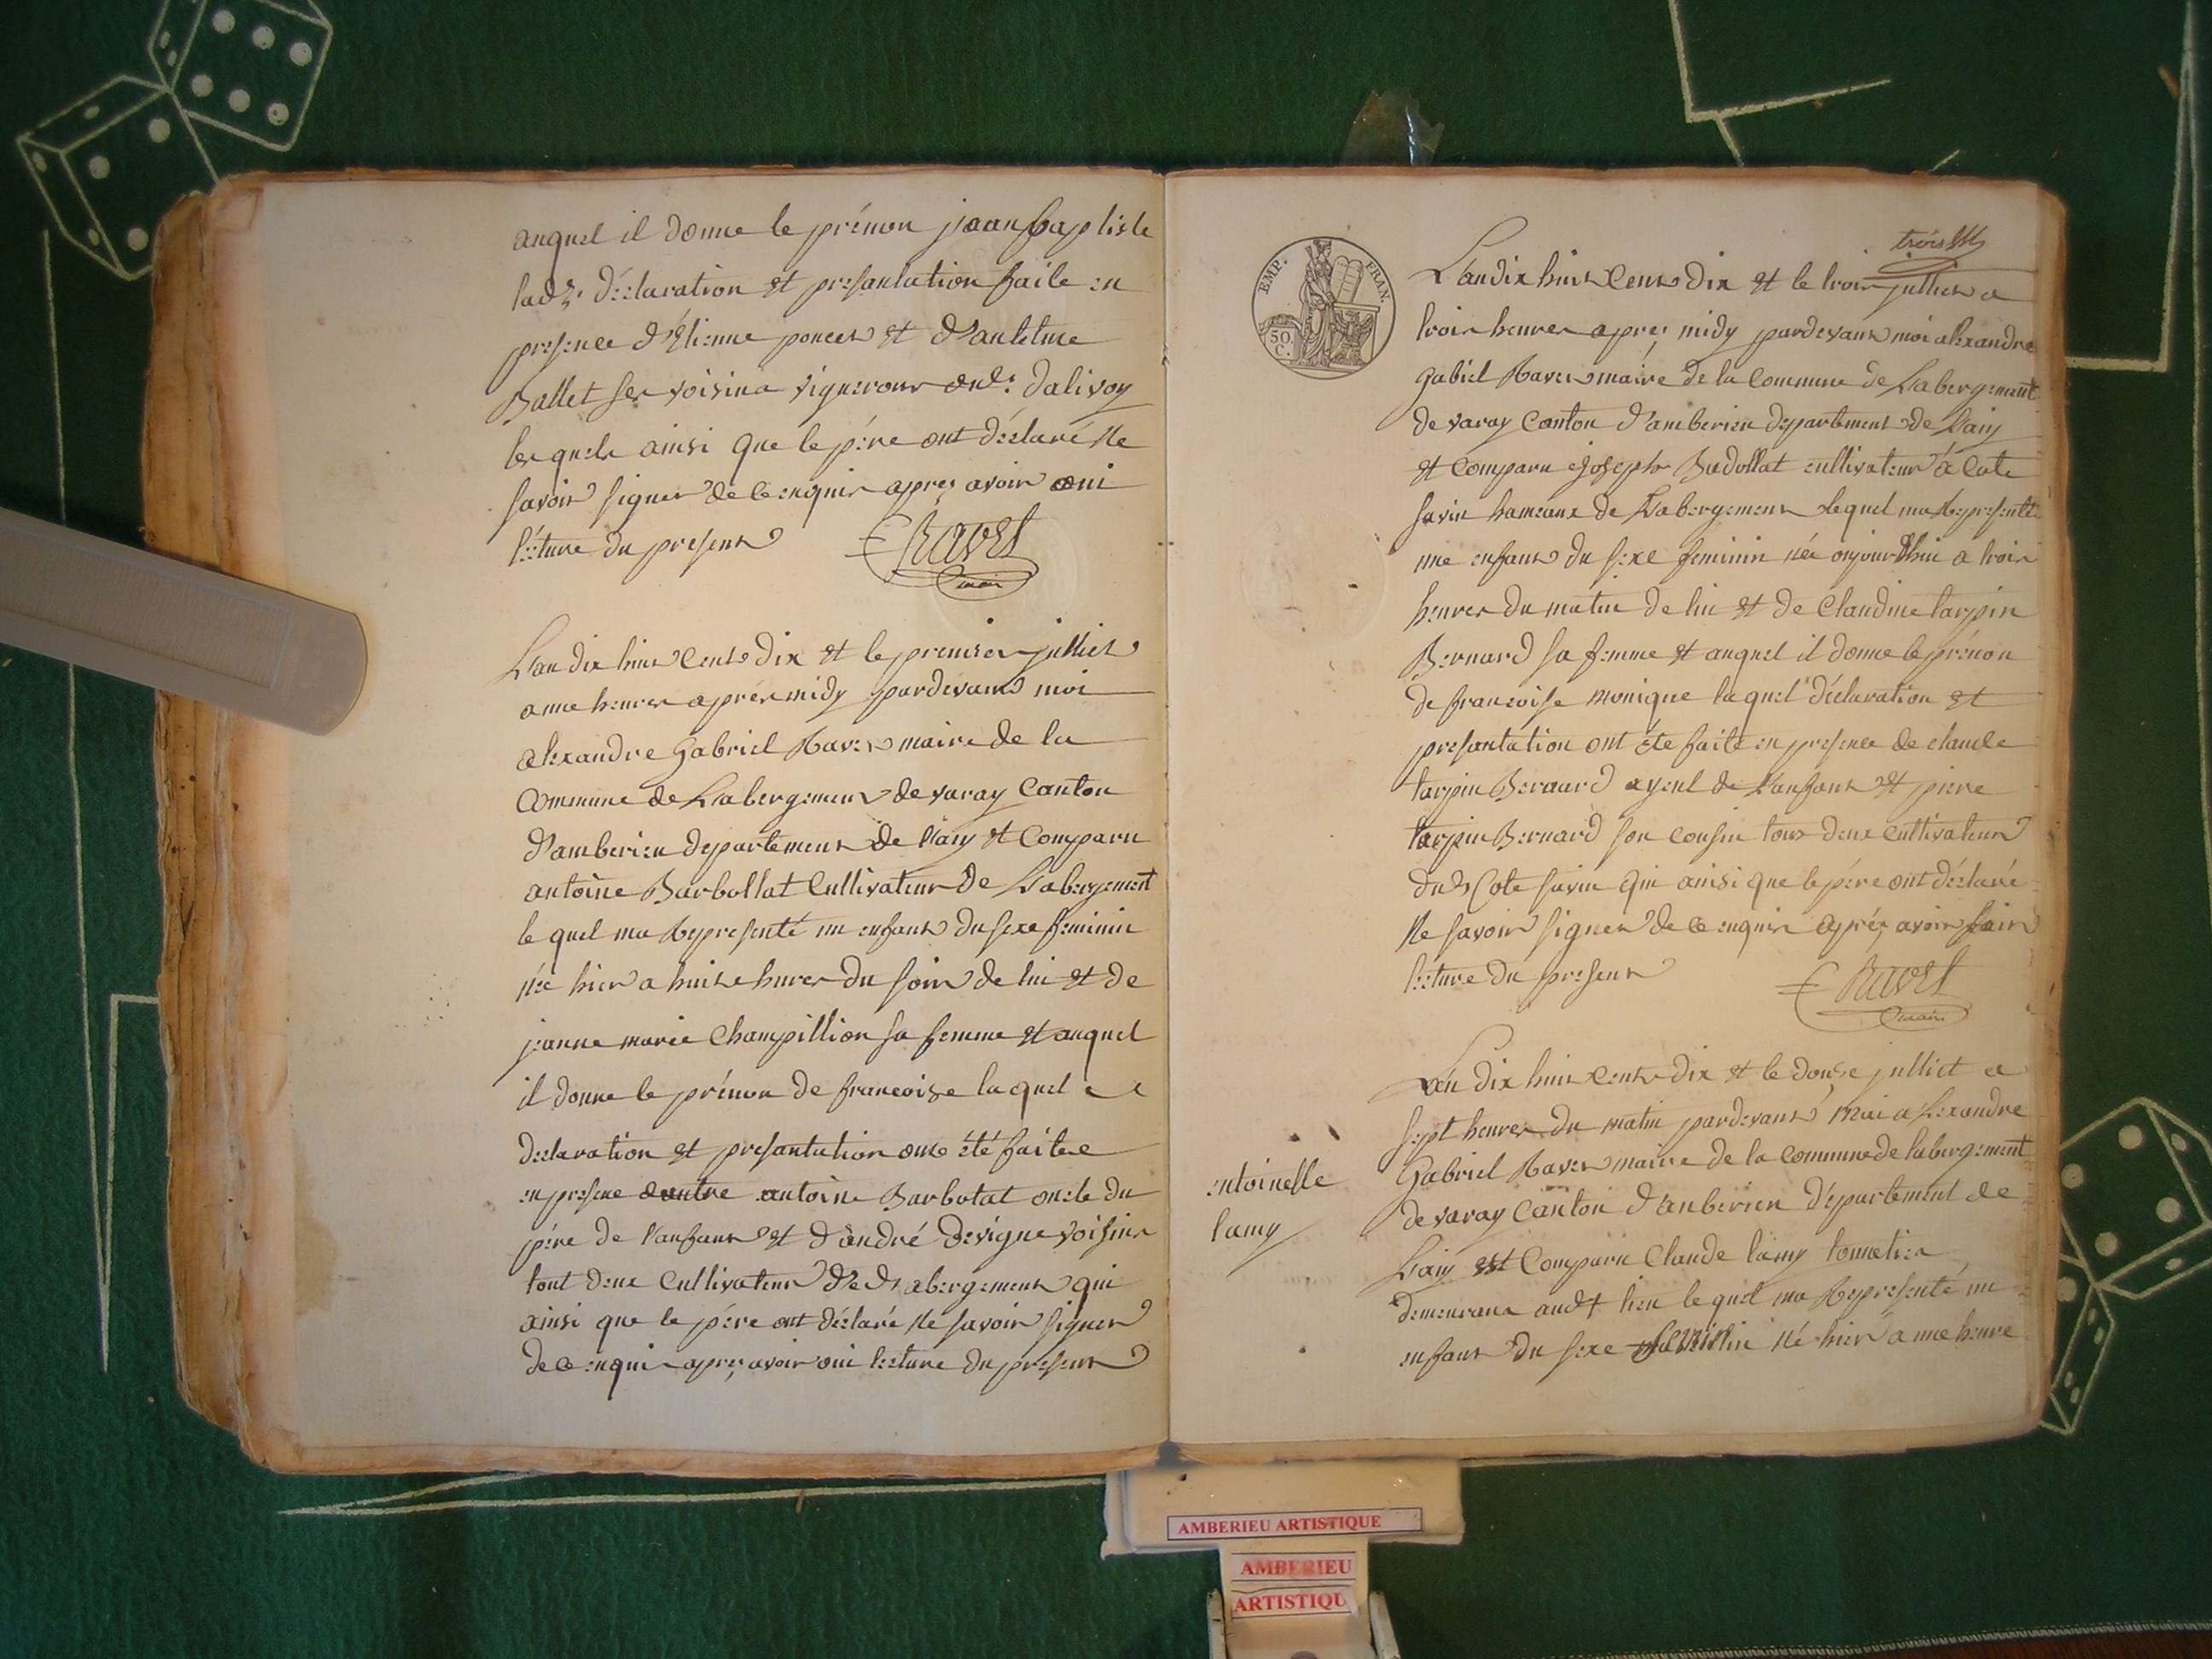 auquel il donne le prénon jaan baptiste
lad.e déclaration et presantation faite en
presence d'Étienne poncet et d'antelme
Ballet ses voisins vignerons dalivoy
lesquels ainsi que le pére ont déclaré Ne
savoir signer de ce enquis après avoir oui
lécture du present Ravet
maire
L'an dix huit cents dix et le premier julliet
a une heures après midy pardevant moi
alexandre Gabriel Ravet maire de la
Commune de Labergement de varay Canton
d'amberieu departement de l'ain et Comparu
antoine Barbollat Cultivateur de Labergement
le quel ma Represénté un enfant du sexe feminin
née hier a huit heures du soir de lui et de
jeanne marie Champillion sa femme et auquel
il donne le prénon de francoise la quel
declaration et presantation ont été faite
en presence antoine Barbotat oncle du
pére de l'anfant et d'andré devigne voisin
tout deux Cultivateur de Labergement qui
ainsi que le pére ont déclaré Ne savoir signer
de ce enquis après avoir oui lecture du present
EMP. FRAN.
50
C.
trois
L'an dix huit Cents dix et le trois julliet a
trois heures après midy pardevant moi alexandre
gabriel Ravet maire de la Commune de Labergement
de varay Canton d'amberieu departement de L'ain
et Comparu joseph Badollat cultivateur à Cote
savin hameaux de Labergement lequel ma Represénté
une enfant du sexe feminin née aujourdhui a trois
heures du matin de lui et de Claudine tarpin
Bernard sa femme et auquel il donne le prénon
de francoise monique la quel déclaration et
presantation ont éte faite en presence de claude
tarpin Bernard ayeul de l'anfant et piere
tarpin Bernard son cousin tous deux Cultivateur
dud Cote savin qui ainsi que le pére ont déclaré
Ne savoir signer de ce enquis après avoir
lécture du present Ravet
maire
L'an dix huit cents dix et le douse julliet a
sept heures du matin pardevant moi alexandre
Gabriel Ravet maire de la commune de labergement
antoinette
lamy
de varay Canton d'anberieu département de
L'ain est Comparu Claude lamy tonnelier
demeurant aud.t lieu lequel ma Represénté un
enfant du sexe né hier a une heure
AMBERIEU ARTISTIQUE
AMBERIEU
ARTISTIQU